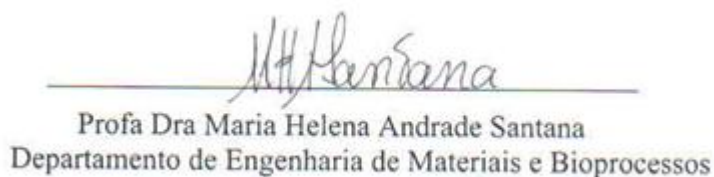 MHSantana
Profa Dra Maria Helena Andrade Santana
Departamento de Engenharia de Materiais e Bioprocessos